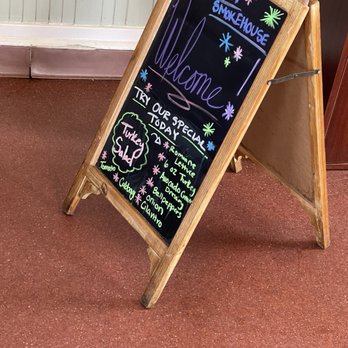 SMOKEHOUSE
Welcome!
TRY OUR SPECIAL
TODAY
Turkey
Salad
Romaine
Lettuce
6 oz Turkey
Avocado
Dressing
Bellpeppers
onion
Cilantro
Tomato
Cabbage